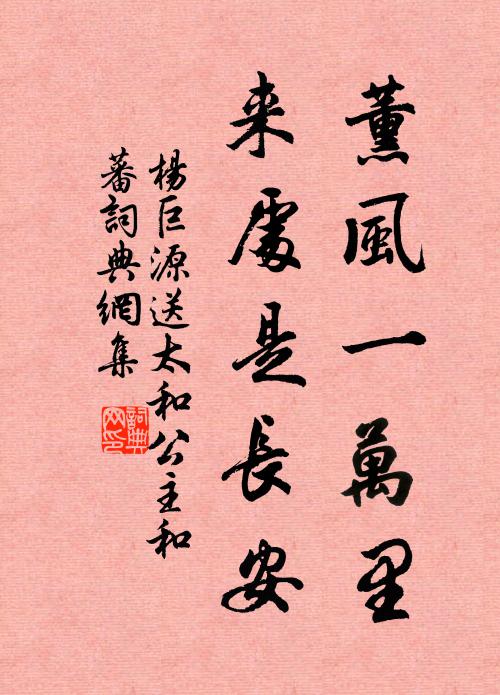 薰風一萬里
来處是長安
楊巨源送太和公主和
蕃詞典網集
詞典網印